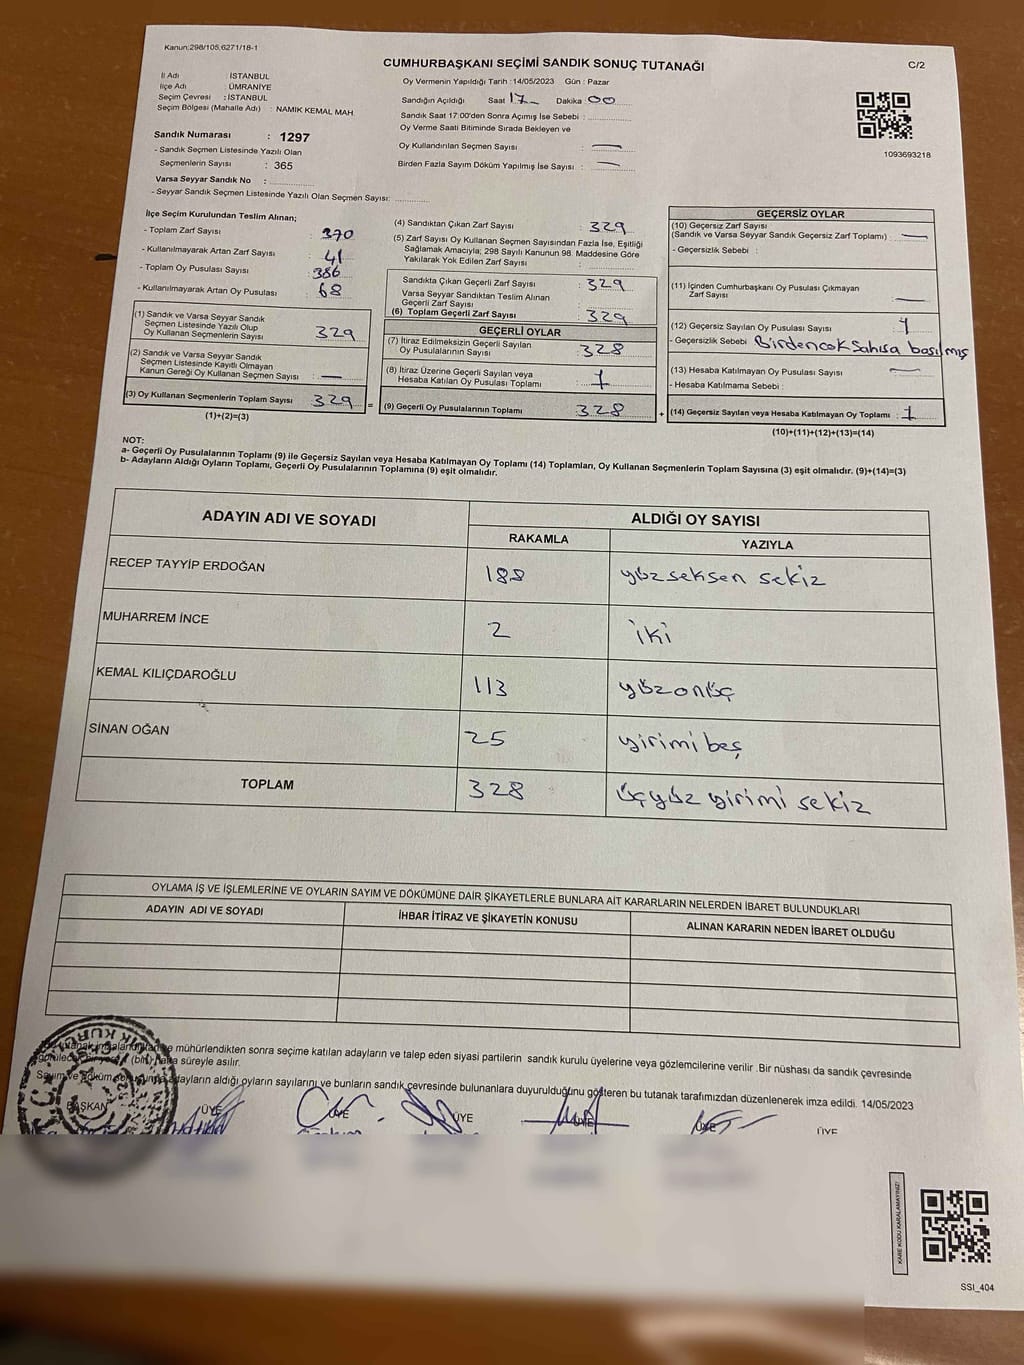 Kanun:298/105,6271/18-1
CUMHURBAŞKANI SEÇİMİ SANDIK SONUÇ TUTANAĞI
C/2
İl Adı : İSTANBUL
İlçe Adı : ÜMRANİYE
Seçim Çevresi : İSTANBUL
Seçim Bölgesi (Mahalle Adı) : NAMIK KEMAL MAH.
Sandık Numarası : 1297
- Sandık Seçmen Listesinde Yazılı Olan
Seçmenlerin Sayısı : 365
Varsa Seyyar Sandık No :
- Seyyar Sandık Seçmen Listesinde Yazılı Olan Seçmen Sayısı:
Oy Vermenin Yapıldığı Tarih :14/05/2023 Gün : Pazar
Sandığın Açıldığı Saat 17 Dakika :00
Sandık Saat 17:00'den Sonra Açımış İse Sebebi :
Oy Verme Saati Bitiminde Sırada Bekleyen ve
Oy Kullandırılan Seçmen Sayısı : —
Birden Fazla Sayım Döküm Yapılmış İse Sayısı : —
1093693218
İlçe Seçim Kurulundan Teslim Alınan;
- Toplam Zarf Sayısı : 370
- Kullanılmayarak Artan Zarf Sayısı : 41
- Toplam Oy Pusulası Sayısı : 386
- Kullanılmayarak Artan Oy Pusulası : 68
(1) Sandık ve Varsa Seyyar Sandık
Seçmen Listesinde Yazılı Olup
Oy Kullanan Seçmenlerin Sayısı : 329
(2) Sandık ve Varsa Seyyar Sandık
Seçmen Listesinde Kayıtlı Olmayan
Kanun Gereği Oy Kullanan Seçmen Sayısı : —
(3) Oy Kullanan Seçmenlerin Toplam Sayısı : 329
(1)+(2)=(3)
(4) Sandıktan Çıkan Zarf Sayısı : 329
(5) Zarf Sayısı Oy Kullanan Seçmen Sayısından Fazla İse, Eşitliği
Sağlamak Amacıyla; 298 Sayılı Kanunun 98. Maddesine Göre
Yakılarak Yok Edilen Zarf Sayısı :
Sandıkta Çıkan Geçerli Zarf Sayısı : 329
Varsa Seyyar Sandıktan Teslim Alınan
Geçerli Zarf Sayısı :
(6) Toplam Geçerli Zarf Sayısı : 329
GEÇERLİ OYLAR
(7) İtiraz Edilmeksizin Geçerli Sayılan
Oy Pusulalarının Sayısı : 328
(8) İtiraz Üzerine Geçerli Sayılan veya
Hesaba Katılan Oy Pusulası Toplamı :
= (9) Geçerli Oy Pusulalarının Toplamı : 328
GEÇERSİZ OYLAR
(10) Geçersiz Zarf Sayısı
(Sandık ve Varsa Seyyar Sandık Geçersiz Zarf Toplamı) : —
- Geçersizlik Sebebi :
(11) İçinden Cumhurbaşkanı Oy Pusulası Çıkmayan
Zarf Sayısı : —
(12) Geçersiz Sayılan Oy Pusulası Sayısı : 1
- Geçersizlik Sebebi Birdencok Sahısa basılmış
(13) Hesaba Katılmayan Oy Pusulası Sayısı : —
- Hesaba Katılmama Sebebi :
+ (14) Geçersiz Sayılan veya Hesaba Katılmayan Oy Toplamı : 1
(10)+(11)+(12)+(13)=(14)
NOT:
a- Geçerli Oy Pusulalarının Toplamı (9) ile Geçersiz Sayılan veya Hesaba Katılmayan Oy Toplamı (14) Toplamları, Oy Kullanan Seçmenlerin Toplam Sayısına (3) eşit olmalıdır. (9)+(14)=(3)
b- Adayların Aldığı Oyların Toplamı, Geçerli Oy Pusulalarının Toplamına (9) eşit olmalıdır.
ADAYIN ADI VE SOYADI
ALDIĞI OY SAYISI
RAKAMLA
YAZIYLA
RECEP TAYYİP ERDOĞAN 188 yüzseksen sekiz
MUHARREM İNCE 2 iki
KEMAL KILIÇDAROĞLU 113 yüzonüç
SİNAN OĞAN 25 yirimi beş
TOPLAM 328 üçyüz yirimi sekiz
OYLAMA İŞ VE İŞLEMLERİNE VE OYLARIN SAYIM VE DÖKÜMÜNE DAİR ŞİKAYETLERLE BUNLARA AİT KARARLARIN NELERDEN İBARET BULUNDUKLARI
ADAYIN ADI VE SOYADI
İHBAR İTİRAZ VE ŞİKAYETİN KONUSU
ALINAN KARARIN NEDEN İBARET OLDUĞU
mühürlendikten sonra seçime katılan adayların ve talep eden siyasi partilerin sandık kurulu üyelerine veya gözlemcilerine verilir .Bir nüshası da sandık çevresinde
(bir) hafta süreyle asılır.
adayların aldığı oyların sayılarını ve bunların sandık çevresinde bulunanlara duyurulduğunu gösteren bu tutanak tarafımızdan düzenlenerek imza edildi. 14/05/2023
BAŞKAN ÜYE ÜYE ÜYE ÜYE ÜYE ÜYE
KARE KODU KARALAMAYINIZ!
SSI_404